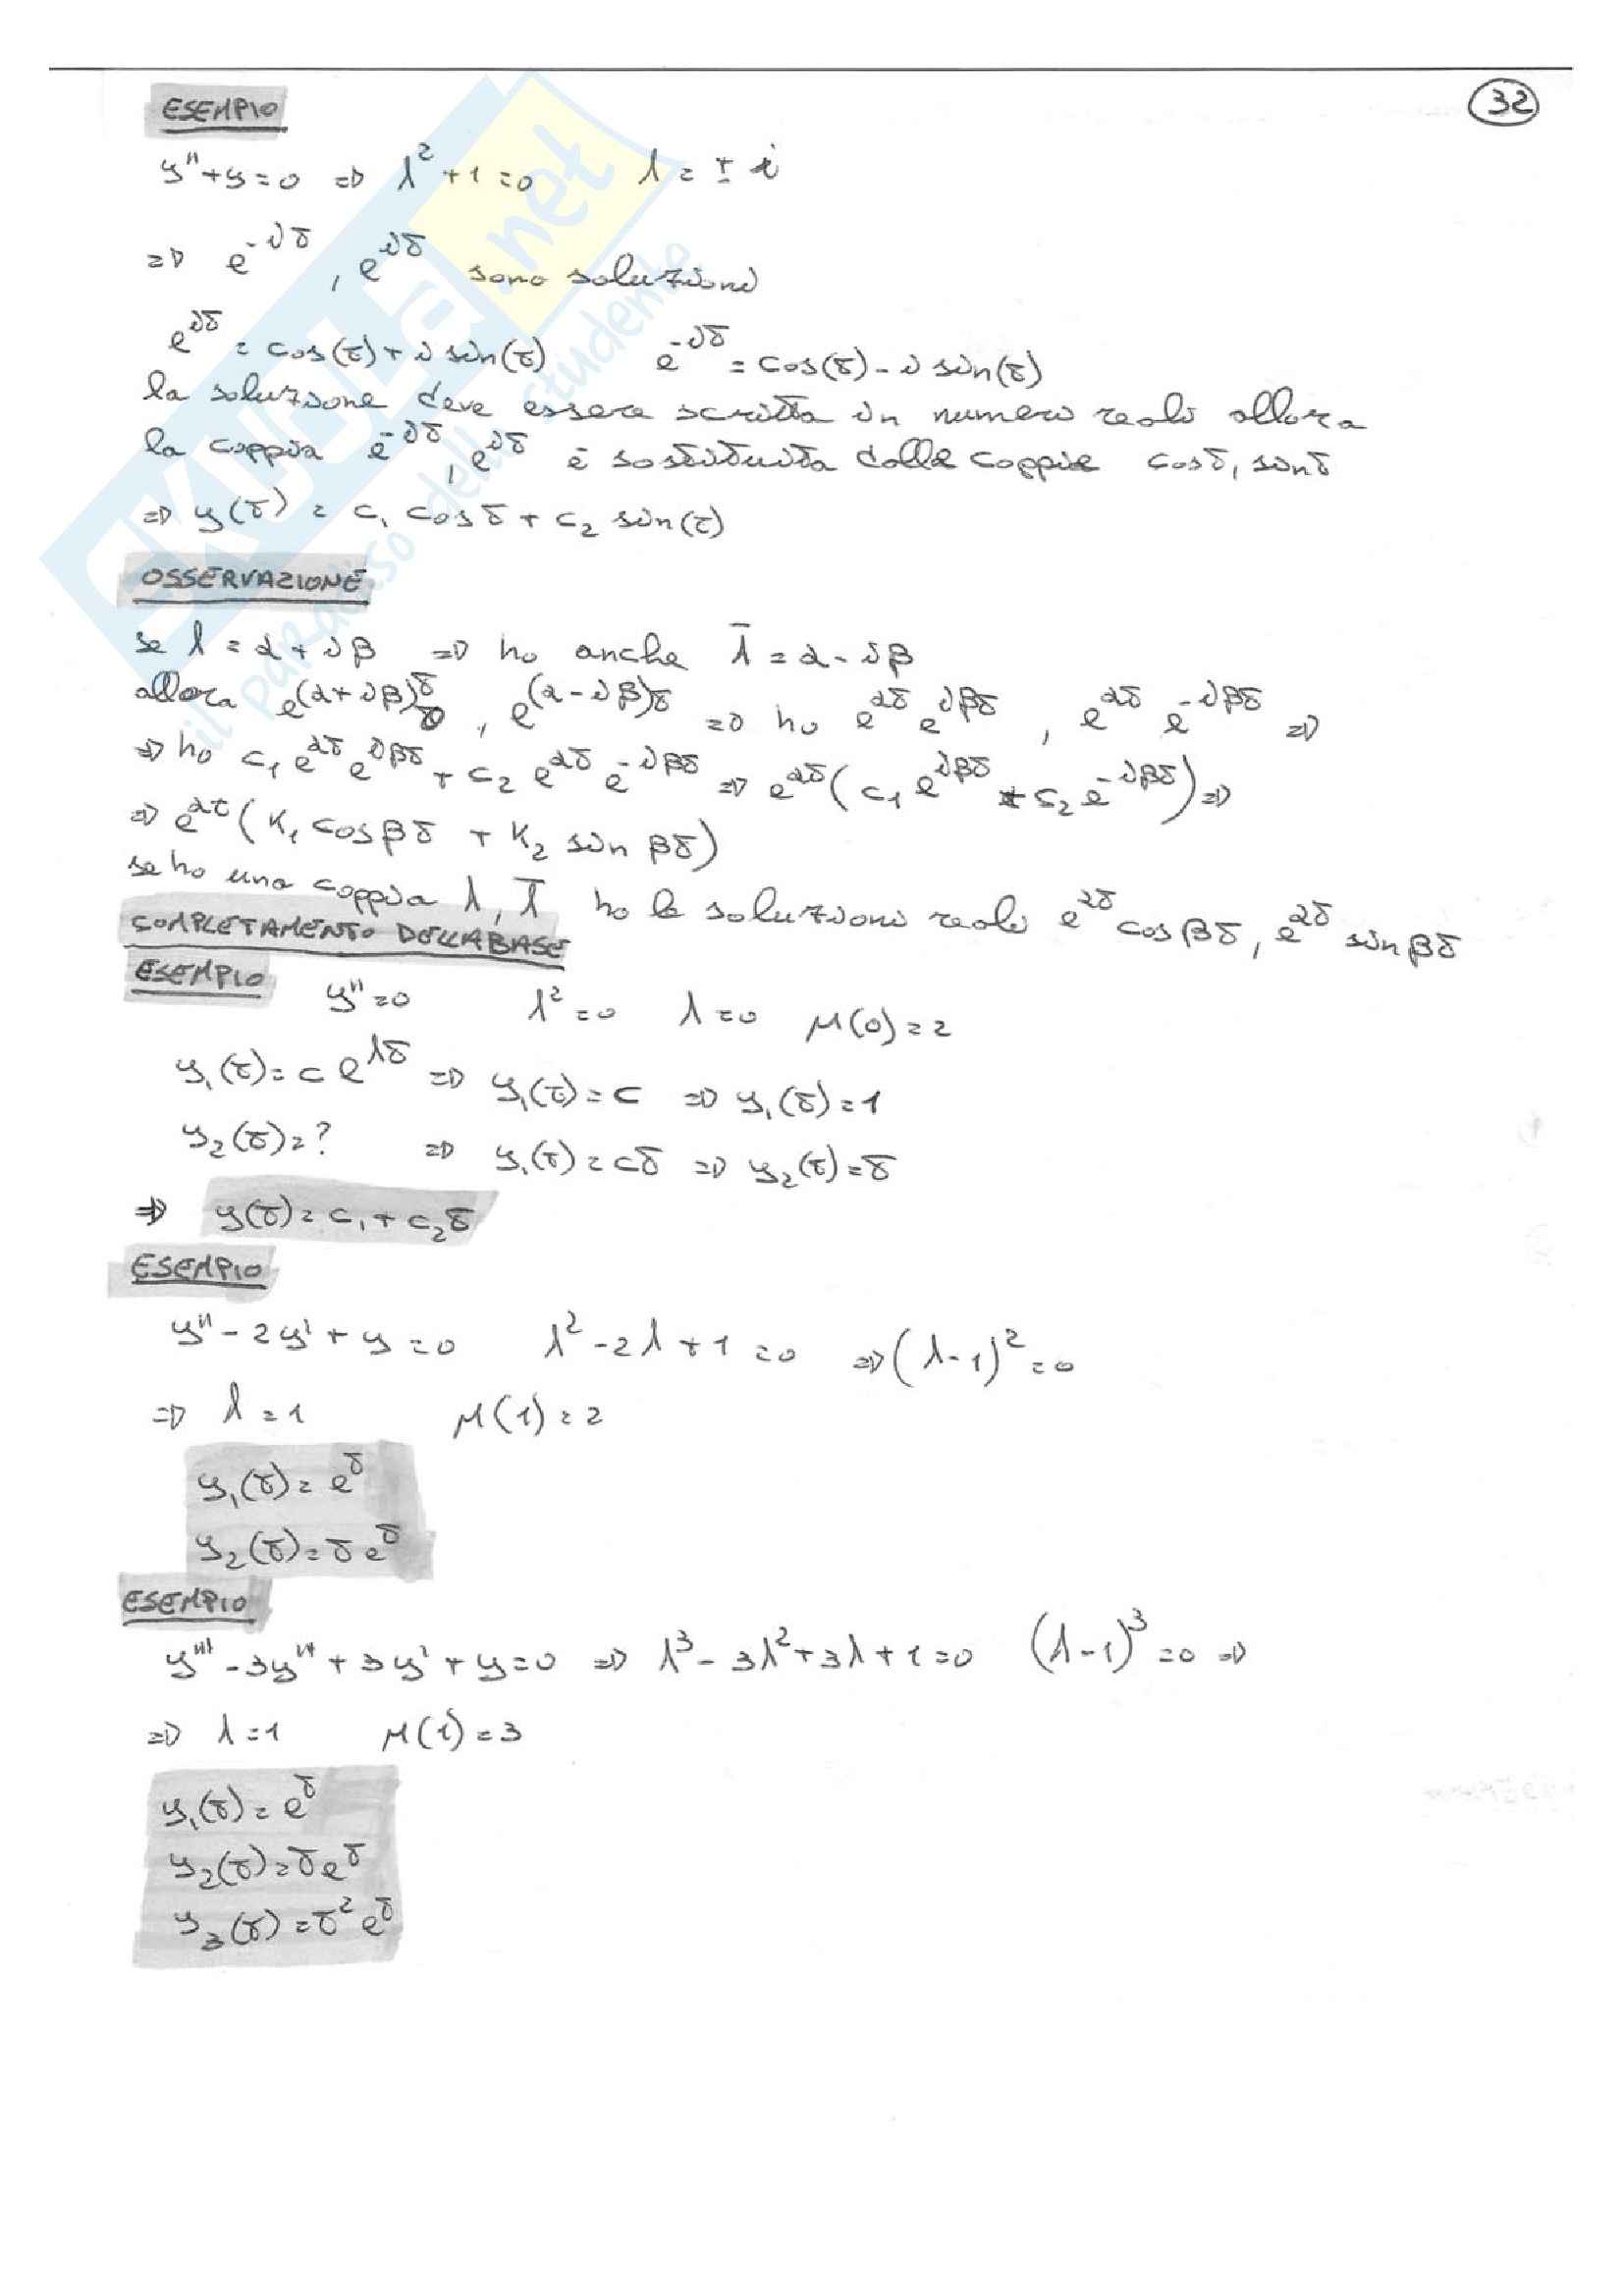 32
ESEMPIO
y"+y=0 ⇒ λ²+1=0 λ=±i
⇒ e^-it, e^it sono soluzioni
e^it = cos(t)+i sin(t) e^-it = cos(t)-i sin(t)
la soluzione deve essere scritta in numeri reali allora
la coppia e^-it, e^it è sostituita dalla coppia cost, sint
⇒ y(t) = c₁ cost + c₂ sin(t)
OSSERVAZIONE
se λ = α+iβ ⇒ ho anche λ̄ = α-iβ
allora e^(α+iβ)t, e^(α-iβ)t ⇒ ho e^αt e^iβt, e^αt e^-iβt ⇒
⇒ ho c₁ e^αt e^iβt + c₂ e^αt e^-iβt ⇒ e^αt (c₁ e^iβt + c₂ e^-iβt) ⇒
⇒ e^αt (K₁ cosβt + K₂ sin βt)
se ho una coppia λ, λ̄ ho le soluzioni reali e^αt cosβt, e^αt sinβt
COMPLETAMENTO DELLA BASE
ESEMPIO
y"=0 λ²=0 λ=0 μ(0)=2
y₁(t)=c e^λt ⇒ y₁(t)=c ⇒ y₁(t)=1
y₂(t)=? ⇒ y₁(t)=ct ⇒ y₂(t)=t
⇒ y(t)=c₁+c₂t
ESEMPIO
y"-2y'+y=0 λ²-2λ+1=0 ⇒(λ-1)²=0
⇒ λ=1 μ(1)=2
y₁(t)=e^t
y₂(t)=te^t
ESEMPIO
y'''-3y"+3y'+y=0 ⇒ λ³-3λ²+3λ+1=0 (λ-1)³=0 ⇒
⇒ λ=1 μ(1)=3
y₁(t)=e^t
y₂(t)=te^t
y₃(t)=t²e^t
SKUOLa.net
il paradiso dello studento